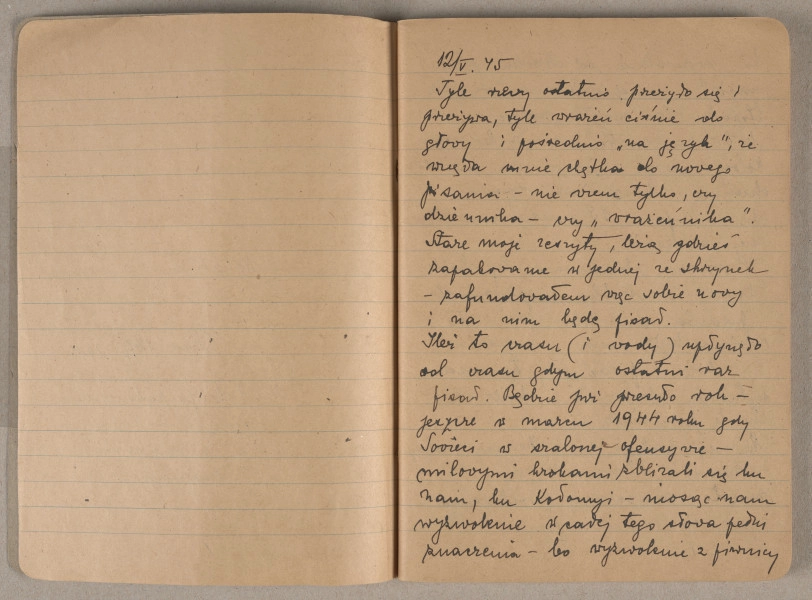 12/V. 45
Tyle rzeczy ostatnio przeżyło się i
przeżywa, tyle wrażeń ciśnie do
głowy i pośrednio „na język”, że
wzięła mnie chętka do nowego
pisania – nie wiem tylko, czy
dziennika – czy „wrażeńnika”.
Stare moje zeszyty, leżą gdzieś
zapakowane w jednej ze skrzynek
– zafundowałem więc sobie nowy
i na nim będę pisał.
Ileż to czasu (i wody) upłynęło
od czasu gdym ostatni raz
pisał. Będzie już przeszło rok –
jeszcze w marcu 1944 roku gdy
Sowieci w szalonej ofensywie –
milowymi krokami zbliżali się ku
nam, ku Kołomyi – niosąc nam
wyzwolenie w całej tego słowa pełni
znaczenia – bo wyzwolenie z piwnicy